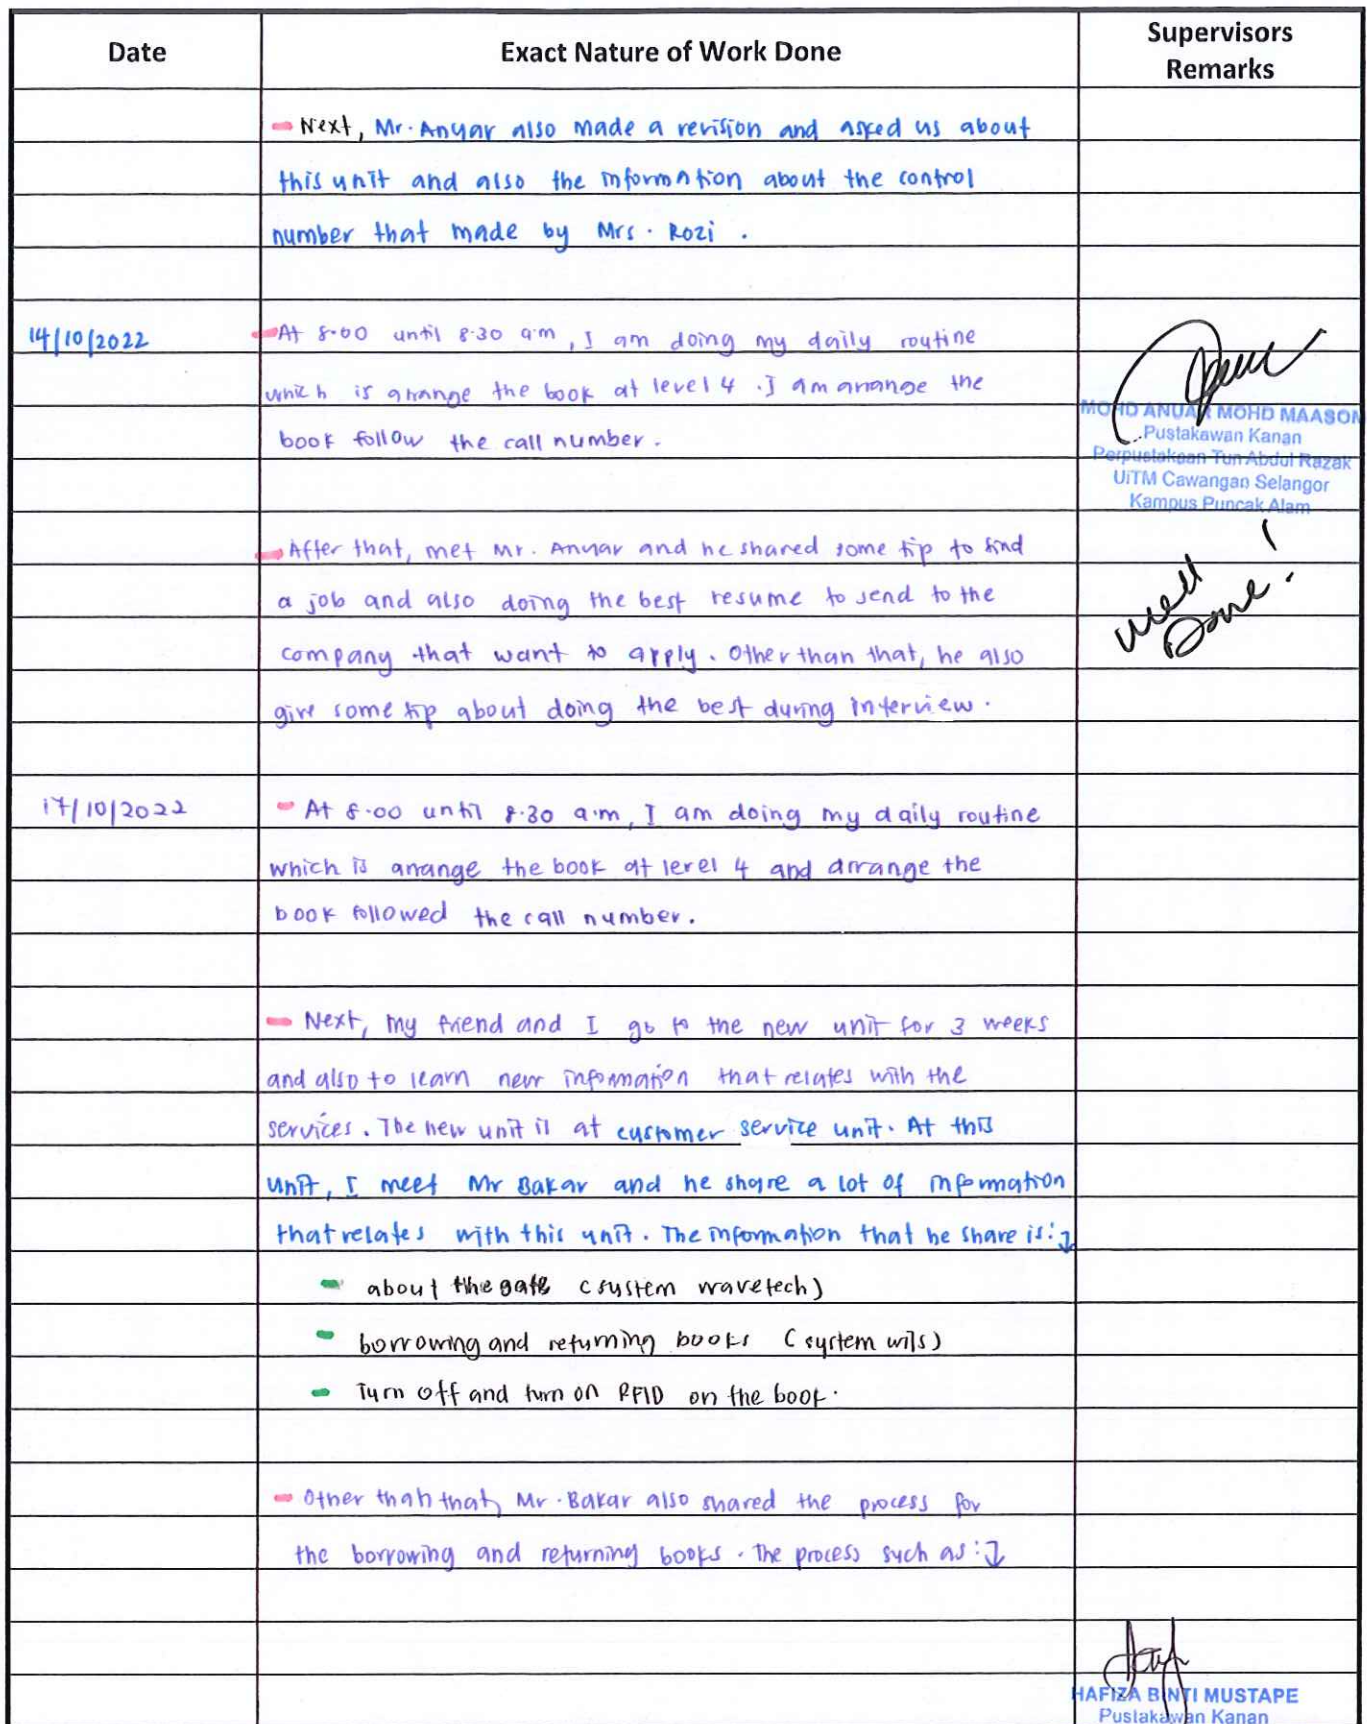 Date
Exact Nature of Work Done
Supervisors
Remarks
- Next, Mr. Anuar also made a revision and asked us about
this unit and also the information about the control
number that made by Mrs. Rozi.
14/10/2022
- At 8.00 until 8.30 a.m, I am doing my daily routine
which is arrange the book at level 4. I am arrange the
book follow the call number.
MOHD ANUAR MOHD MAASOM
Pustakawan Kanan
Perpustakaan Tun Abdul Razak
UiTM Cawangan Selangor
Kampus Puncak Alam
- After that, met Mr. Anuar and he shared some tip to find
a job and also doing the best resume to send to the
company that want to apply. Other than that, he also
give some tip about doing the best during interview.
Well
Done!
17/10/2022
- At 8.00 until 8.30 a.m, I am doing my daily routine
which is arrange the book at level 4 and arrange the
book followed the call number.
- Next, my friend and I go to the new unit for 3 weeks
and also to learn new information that relates with the
services. The new unit is at customer service unit. At this
unit, I meet Mr Bakar and he share a lot of information
that relates with this unit. The information that he share is:↓
- about the gate (system wavetech)
- borrowing and returning books (system wils)
- Turn off and turn on RFID on the book.
- Other than that, Mr. Bakar also shared the process for
the borrowing and returning books. The process such as:↓
HAFIZA BINTI MUSTAPE
Pustakawan Kanan